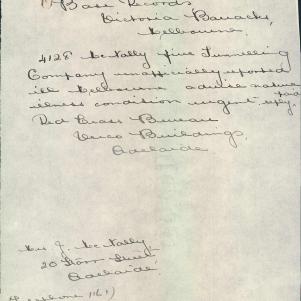 Base Records
Victoria Barracks,
Melbourne.
4128 McNally five Tunnelling
Company unofficially reported
ill Melbourne advise nature
illness condition urgent reply. paid
Red Cross Bureau
Verco Buildings,
Adelaide
Mrs J. McNally,
20 Storr Street,
Adelaide.